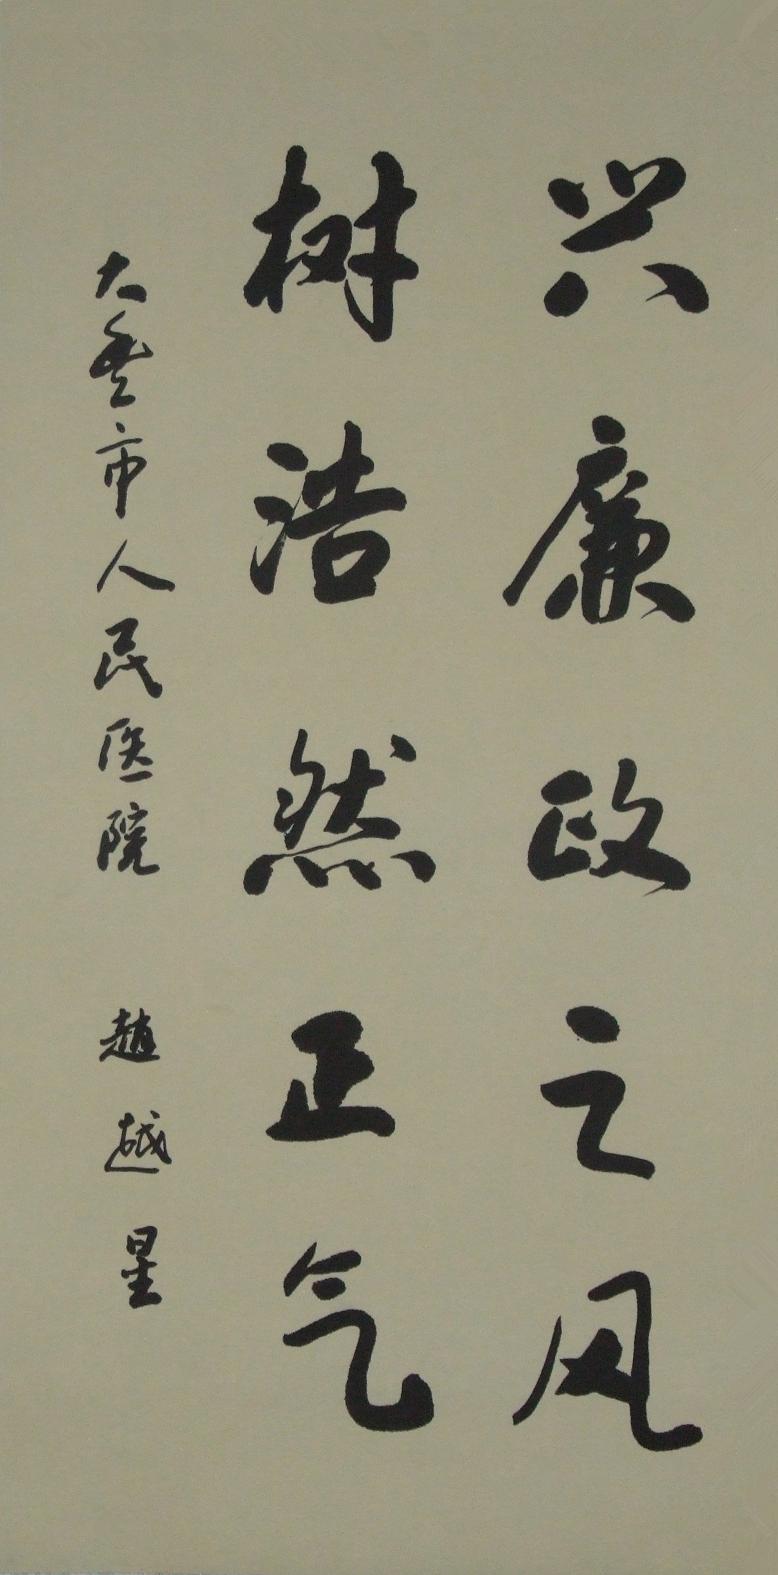 兴廉政之风
树浩然正气
大垒市人民医院 趙越星